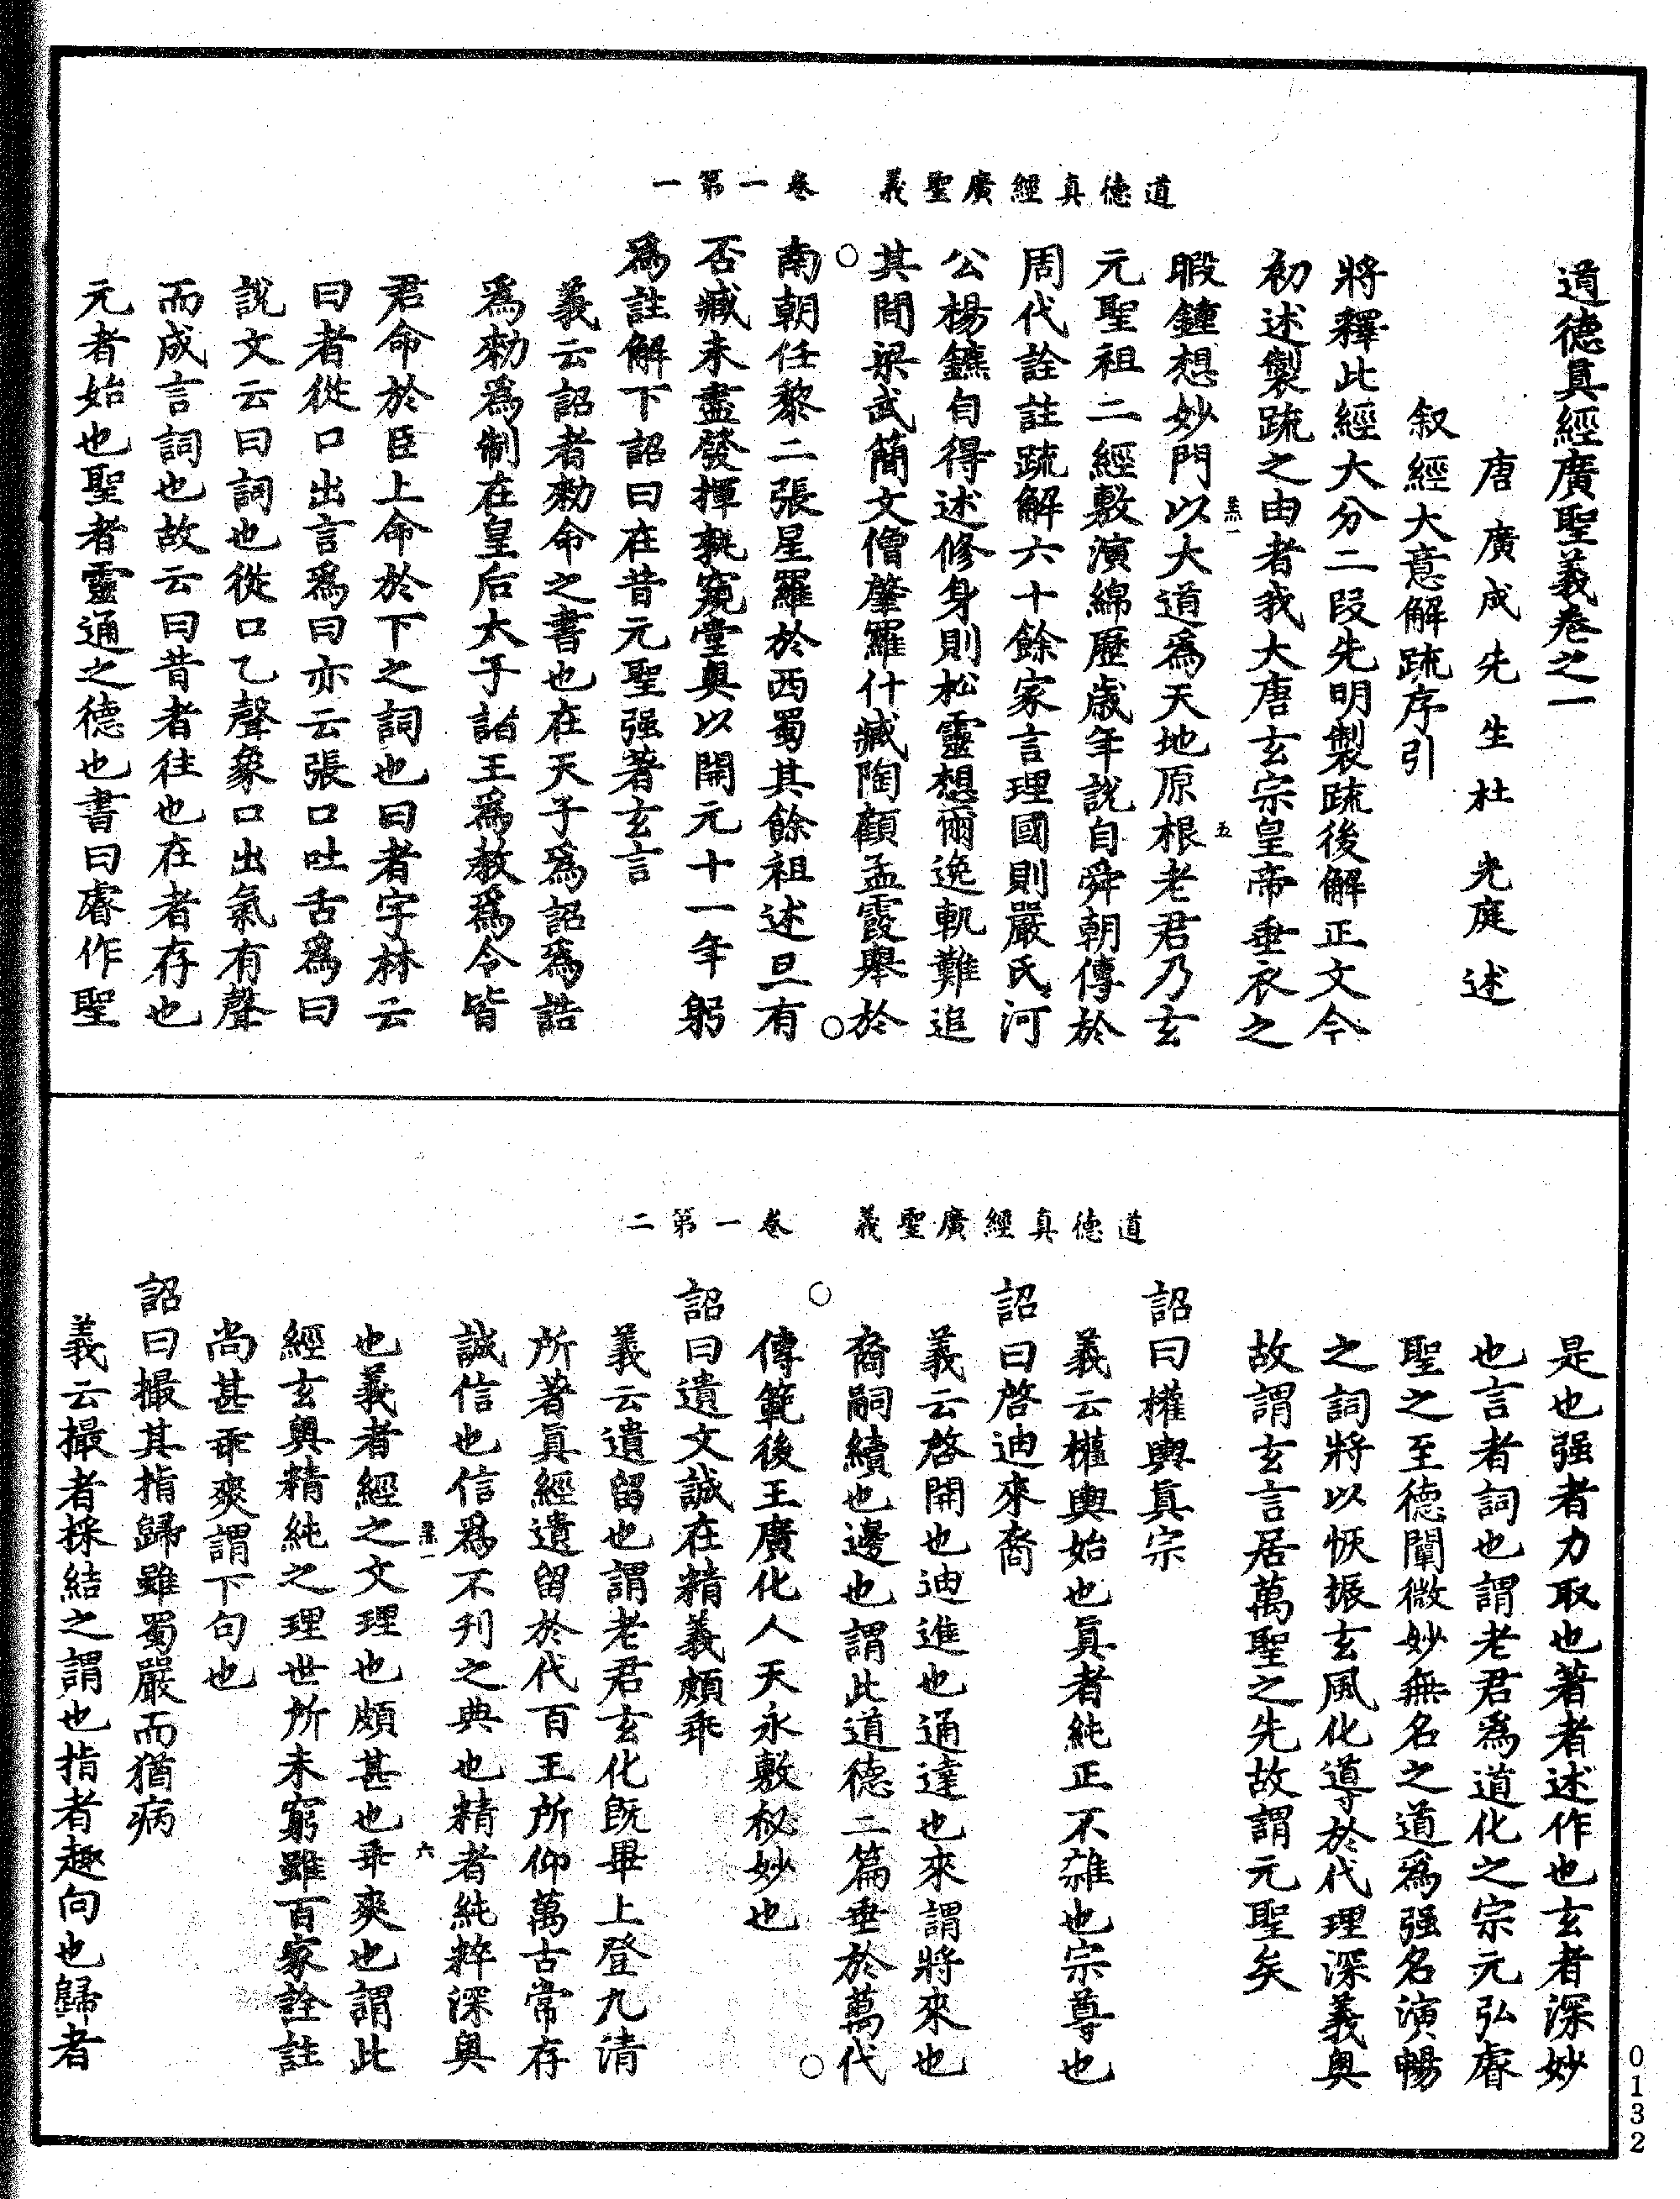 道德真經廣聖義　卷一第一
道德真經廣聖義卷之一
唐廣成先生杜光庭述
叙經大意解疏序引
將釋此經大分二段先明製疏後解正文今
初述製疏之由者我大唐玄宗皇帝垂衣之
暇鍾想妙門以大道爲天地原根老君乃玄
元聖祖二經敷演綿歷歲年説自舜朝傳於
周代詮註疏解六十餘家言理國則嚴氏河
公楊鑣自得述修身則松靈想爾逸軌難追
其間梁武簡文僧肇羅什臧陶顧孟霞舉於
南朝任黎二張星羅於西蜀其餘祖述旦有
否臧未盡發揮孰窺堂奥以開元十一年躬
爲註解下詔曰在昔元聖强著玄言
義云詔者勑命之書也在天子爲詔爲誥
爲勑爲制在皇后太子諸王爲教爲令皆
君命於臣上命於下之詞也曰者字林云
曰者從口出言爲曰亦云張口吐舌爲曰
説文云曰詞也從口乙聲象口出氣有聲
而成言詞也故云曰昔者往也在者存也
元者始也聖者靈通之德也書曰睿作聖
道德真經廣聖義　卷一第二
是也强者力取也著者述作也玄者深妙
也言者詞也謂老君爲道化之宗元弘睿
聖之至德闡微妙無名之道爲强名演暢
之詞將以恢振玄風化導於代理深義奥
故謂玄言居萬聖之先故謂元聖矣
詔曰權輿眞宗
義云權輿始也眞者純正不雜也宗尊也
詔曰啓迪來裔
義云啓開也迪進也通達也來謂將來也
裔嗣續也邊也謂此道德二篇垂於萬代
傳範後王廣化人天永敷秘妙也
詔曰遺文誠在精義頗乖
義云遺留也謂老君玄化既畢上登九清
所著眞經遺留於代百王所仰萬古常存
誠信也信爲不刊之典也精者純粹深奥
也義者經之文理也頗甚也乖爽也謂此
經玄奥精純之理世所未窮雖百家詮註
尚甚乖爽謂下句也
詔曰撮其指歸雖蜀嚴而猶病
義云撮者採結之謂也指者趣向也歸者
0132